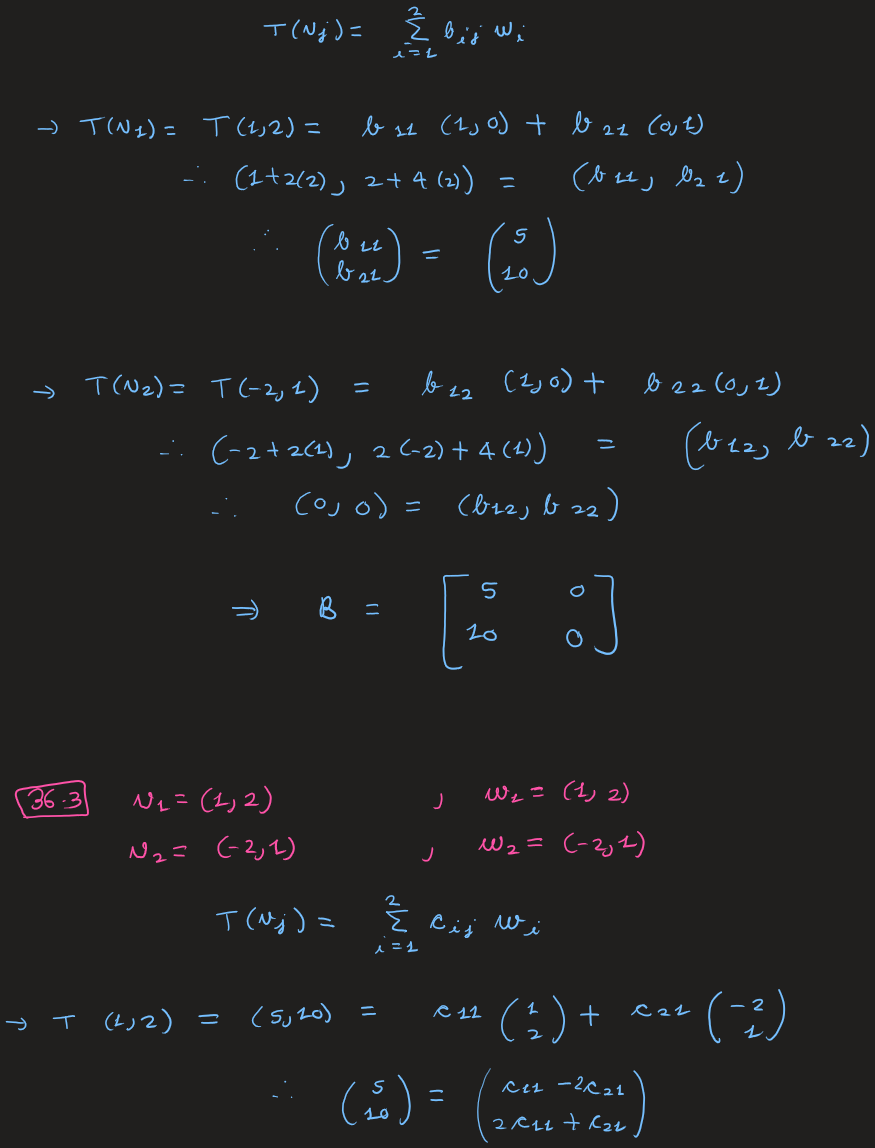 T(v_j) = \sum_{i=1}^{2} b_{ij} w_i
→ T(v_1) = T(1,2) = b_{11} (1,0) + b_{21} (0,1)
∴ (1+2(2), 2+4(2)) = (b_{11}, b_{21})
∴ \begin{pmatrix} b_{11} \\ b_{21} \end{pmatrix} = \begin{pmatrix} 5 \\ 10 \end{pmatrix}
→ T(v_2) = T(-2,1) = b_{12} (1,0) + b_{22} (0,1)
∴ (-2+2(1), 2(-2)+4(1)) = (b_{12}, b_{22})
∴ (0,0) = (b_{12}, b_{22})
⇒ B = \begin{bmatrix} 5 & 0 \\ 10 & 0 \end{bmatrix}
36.3 v_1 = (1,2) , w_1 = (1,2)
v_2 = (-2,1) , w_2 = (-2,1)
T(v_j) = \sum_{i=1}^{2} c_{ij} w_i
→ T (1,2) = (5,10) = c_{11} \begin{pmatrix} 1 \\ 2 \end{pmatrix} + c_{21} \begin{pmatrix} -2 \\ 1 \end{pmatrix}
∴ \begin{pmatrix} 5 \\ 10 \end{pmatrix} = \begin{pmatrix} c_{11} - 2c_{21} \\ 2c_{11} + c_{21} \end{pmatrix}